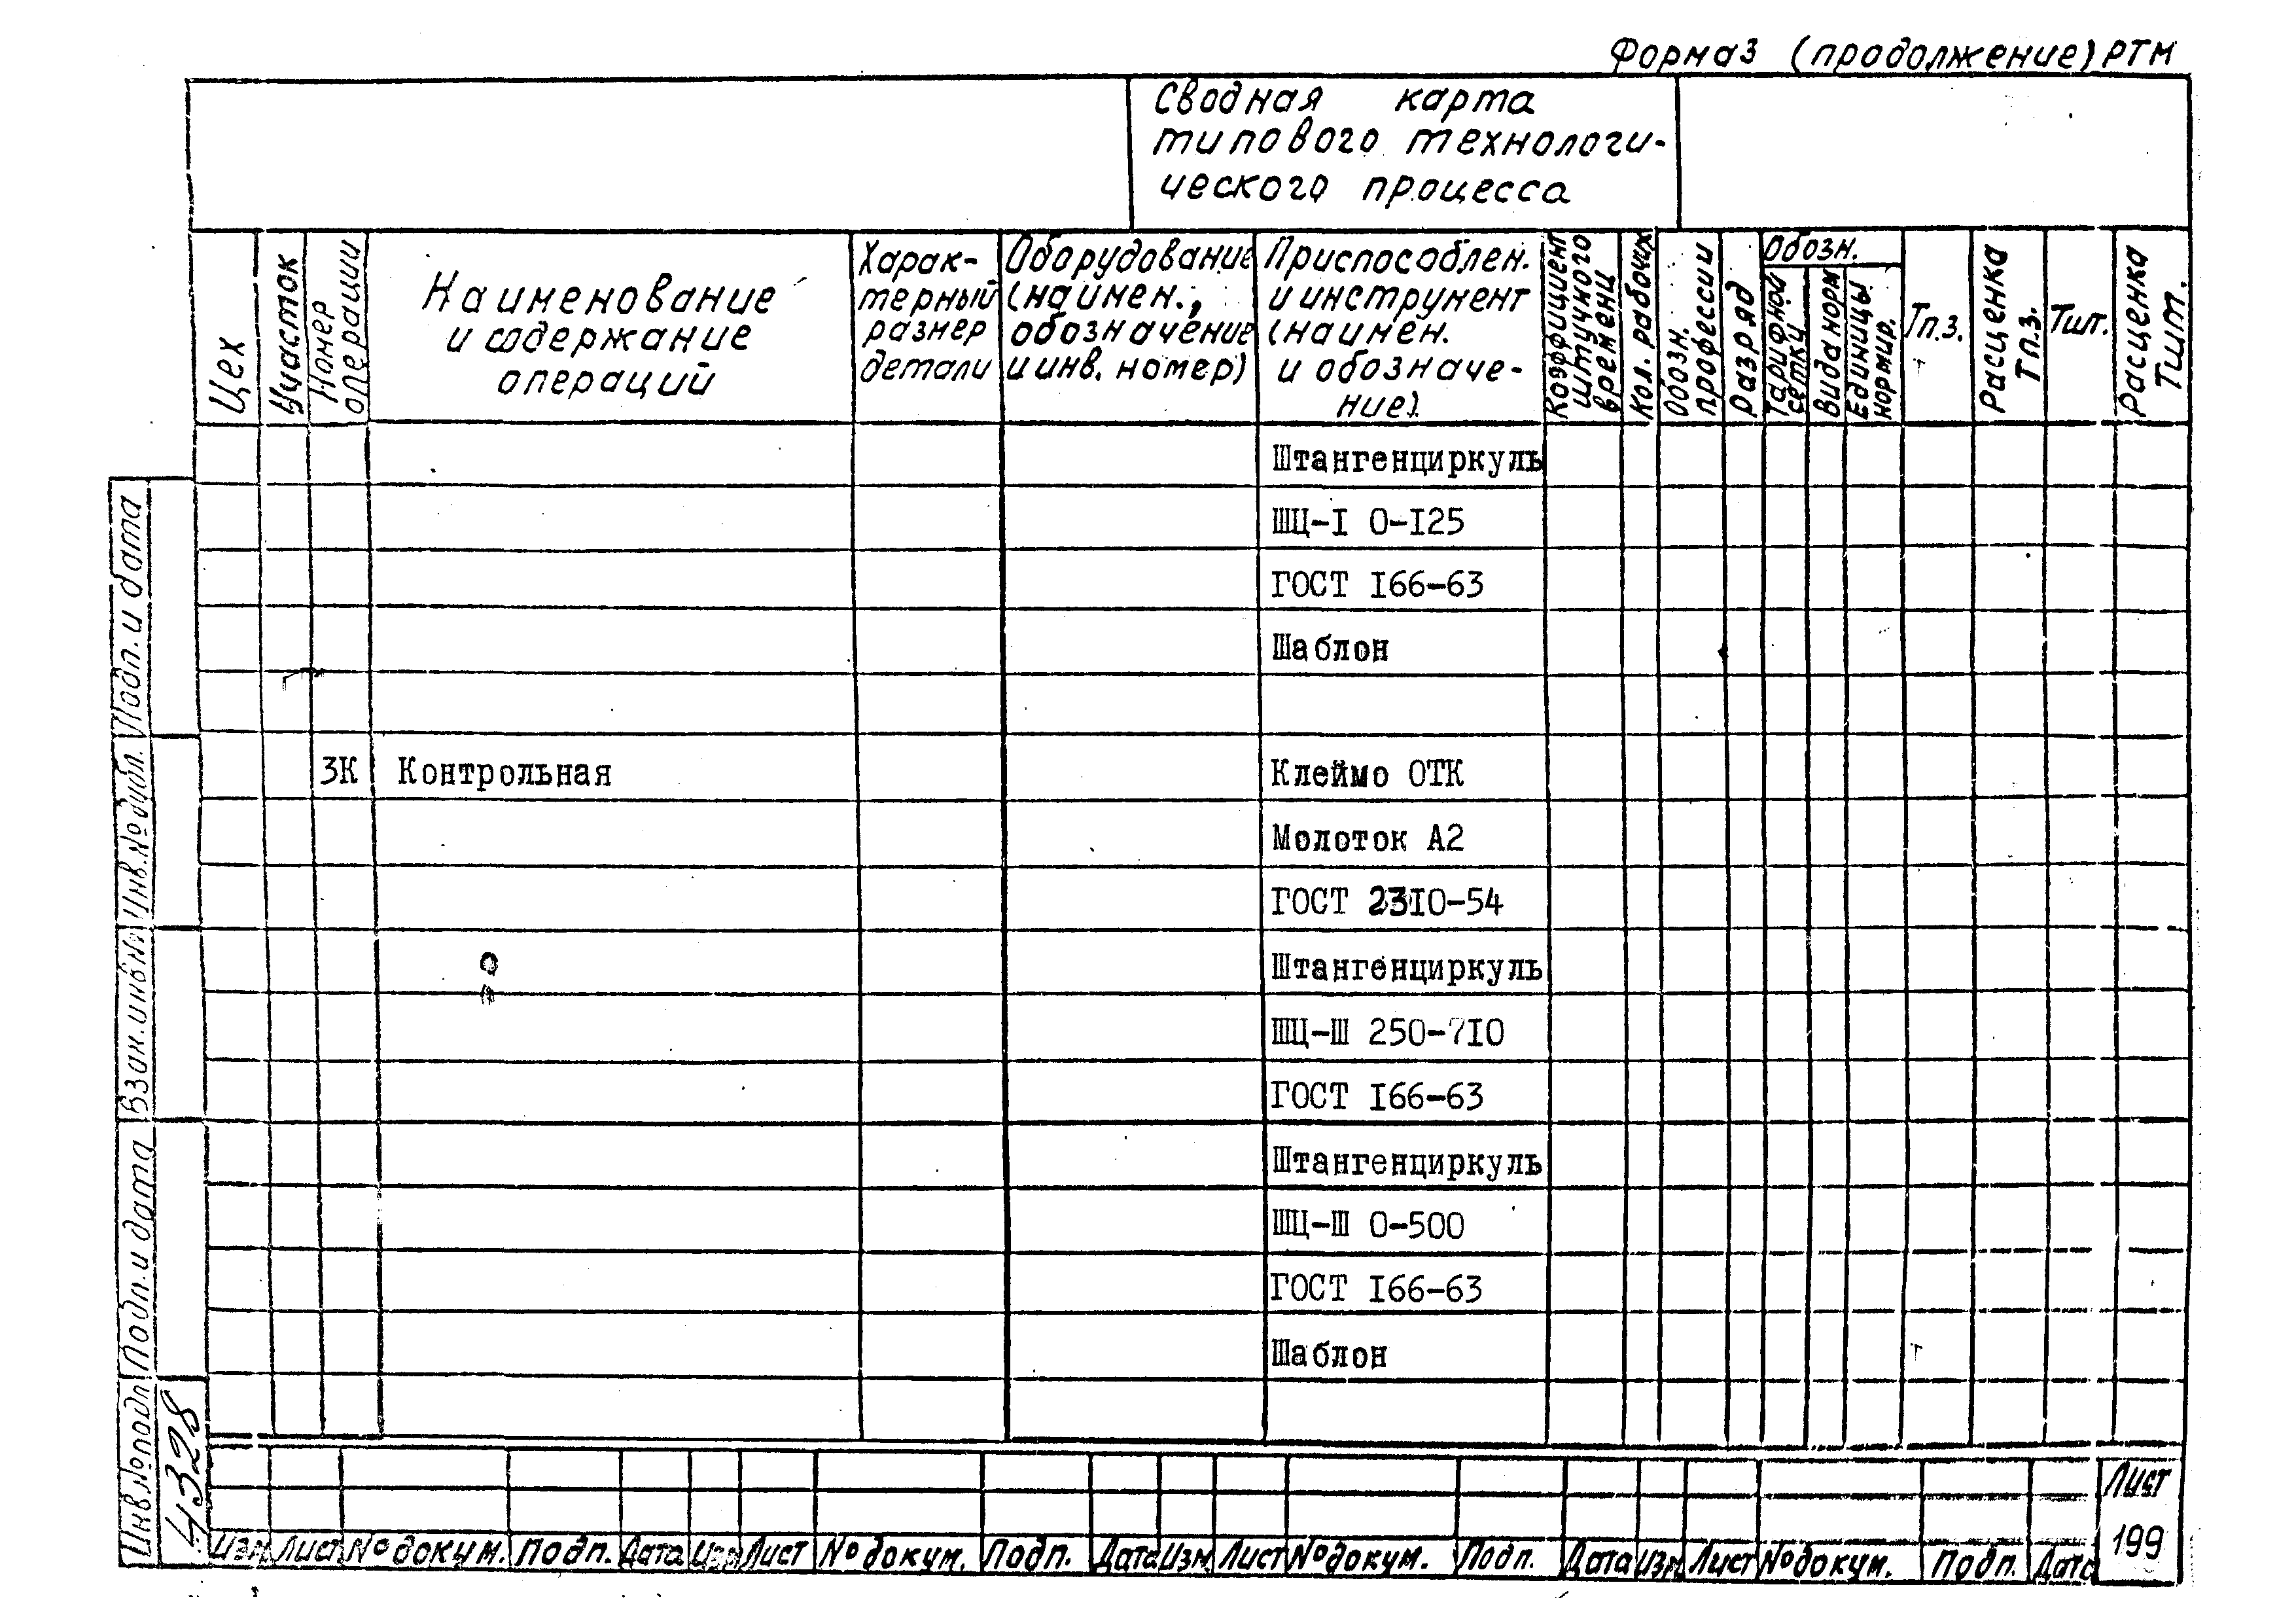 Форма 3 (продолжение) РТМ
Сводная карта
типового технологи-
ческого процесса
Цех
Участок
Номер
операции
Наименование
и содержание
операций
Харак-
терный
размер
детали
Оборудование
(наимен.,
обозначение
и инв. номер)
Приспособлен.
и инструмент
(наимен.
и обозначе-
ние).
Коэффициент
штучного
времени
Кол. рабочих
Обозн.
профессии
Разряд
Обозн.
Тарифной
сетки
Вида норм
Единицы
нормир.
Тп.з.
Расценка
Тп.з.
Тшт.
Расценка
Тшт.
Штангенциркуль
ШЦ-I 0-I25
ГОСТ I66-63
Шаблон
3К Контрольная Клеймо ОТК
Молоток А2
ГОСТ 23I0-54
Штангенциркуль
ШЦ-Ш 250-7I0
ГОСТ I66-63
Штангенциркуль
ШЦ-Ш 0-500
ГОСТ I66-63
Шаблон
Подп. и дата
Инв.№ дубл.
Взам.инв№
Подп. и дата
Инв.№подл
4328
Изм Лист № докум. Подп. Дата Изм Лист № докум. Подп. Дата Изм. Лист № докум. Подп. Дата Изм. Лист № докум. Подп. Дата
Лист
199